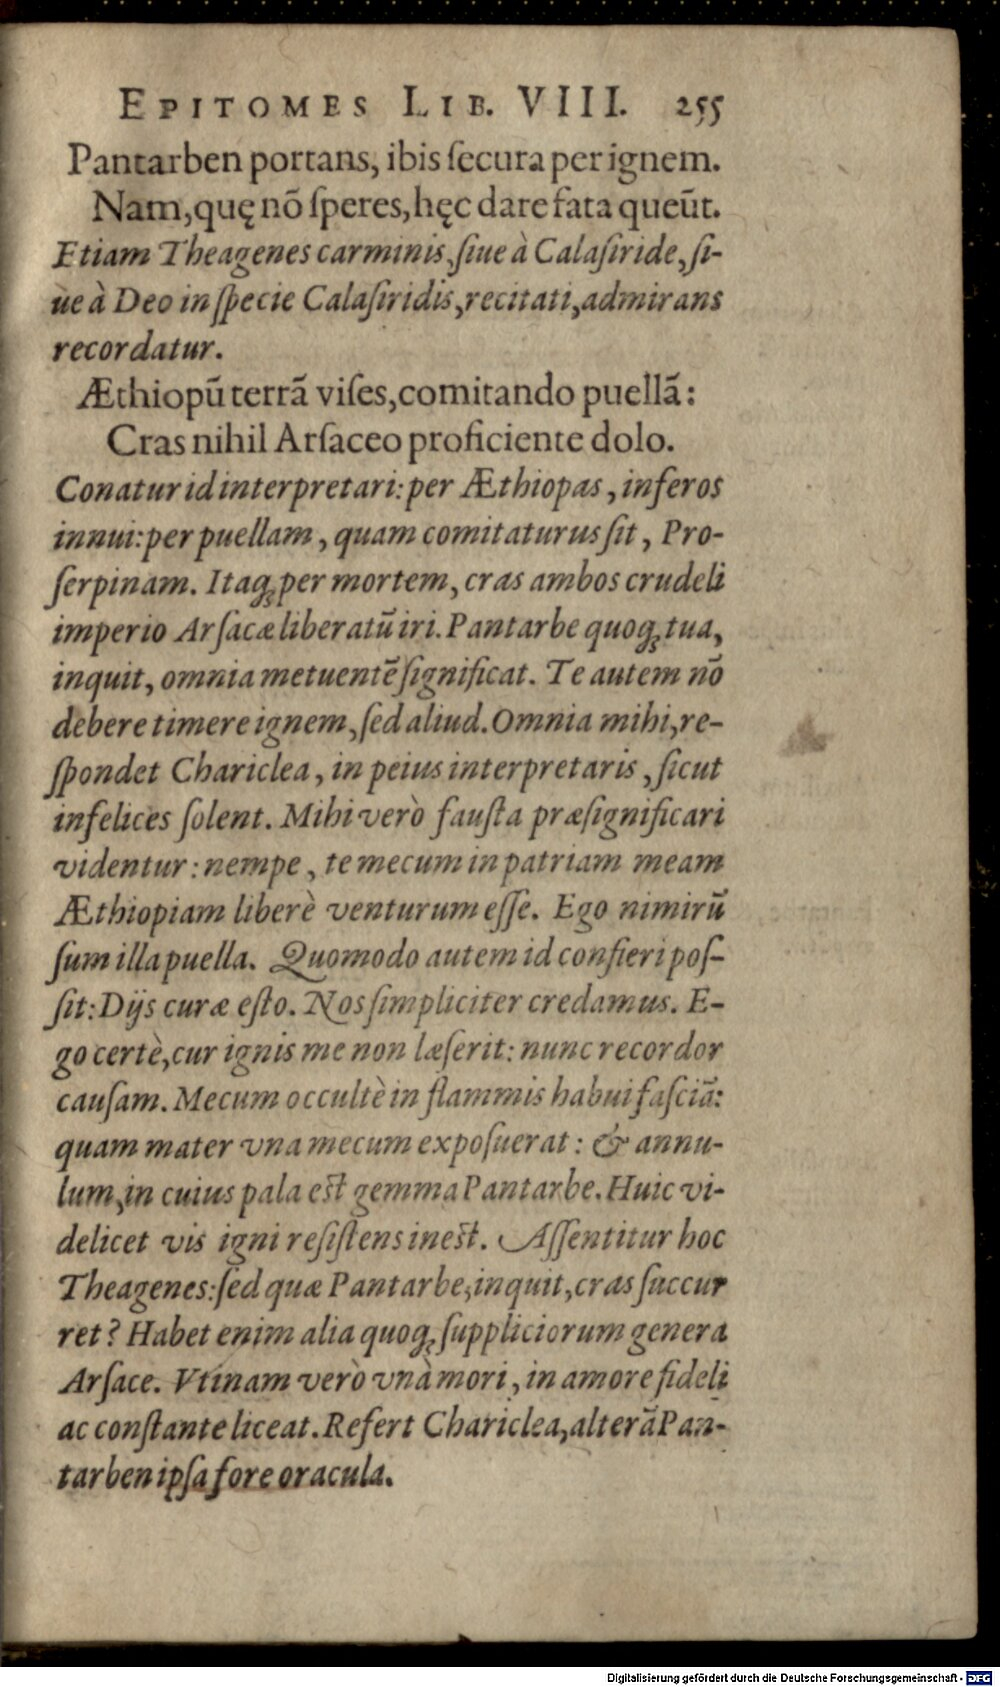 EPITOMES LIB. VIII. 255
Pantarben portans, ibis ſecura per ignem.
Nam, quę nõ ſperes, hęc dare fata queũt.
Etiam Theagenes carminis, ſiue à Calaſiride, ſi-
ue à Deo in ſpecie Calaſiridis, recitati, admirans
recordatur.
Æthiopũ terrã viſes, comitando puellã:
Cras nihil Arſaceo proficiente dolo.
Conatur id interpretari: per Æthiopas, inferos
innui: per puellam, quam comitaturus ſit, Pro-
ſerpinam. Itaq́ꝫ per mortem, cras ambos crudeli
imperio Arſacæ liberatũ iri. Pantarbe quoq́ꝫ tua,
inquit, omnia metuentẽ ſignificat. Te autem nõ
debere timere ignem, ſed aliud. Omnia mihi, re-
ſpondet Chariclea, in peius interpretaris, ſicut
infelices ſolent. Mihi verò fauſta præſignificari
videntur: nempe, te mecum in patriam meam
Æthiopiam liberè venturum eſſe. Ego nimirũ
ſum illa puella. Quomodo autem id confieri poſ-
ſit: Dijs curæ eſto. Nos ſimpliciter credamus. E-
go certè, cur ignis me non læſerit: nunc recordor
cauſam. Mecum occultè in flammis habui faſciã:
quam mater vna mecum expoſuerat: & annu-
lum, in cuius pala est gemma Pantarbe. Huic vi-
delicet vis igni reſiſtens inest. Aſſentitur hoc
Theagenes: ſed quæ Pantarbe, inquit, cras ſuccur
ret? Habet enim alia quoq́ꝫ ſuppliciorum genera
Arſace. Vtinam verò vnà mori, in amore fideli
ac conſtante liceat. Refert Chariclea, alterã Pan-
tarben ipſa fore oracula.
Digitalisierung gefördert durch die Deutsche Forschungsgemeinschaft - DFG